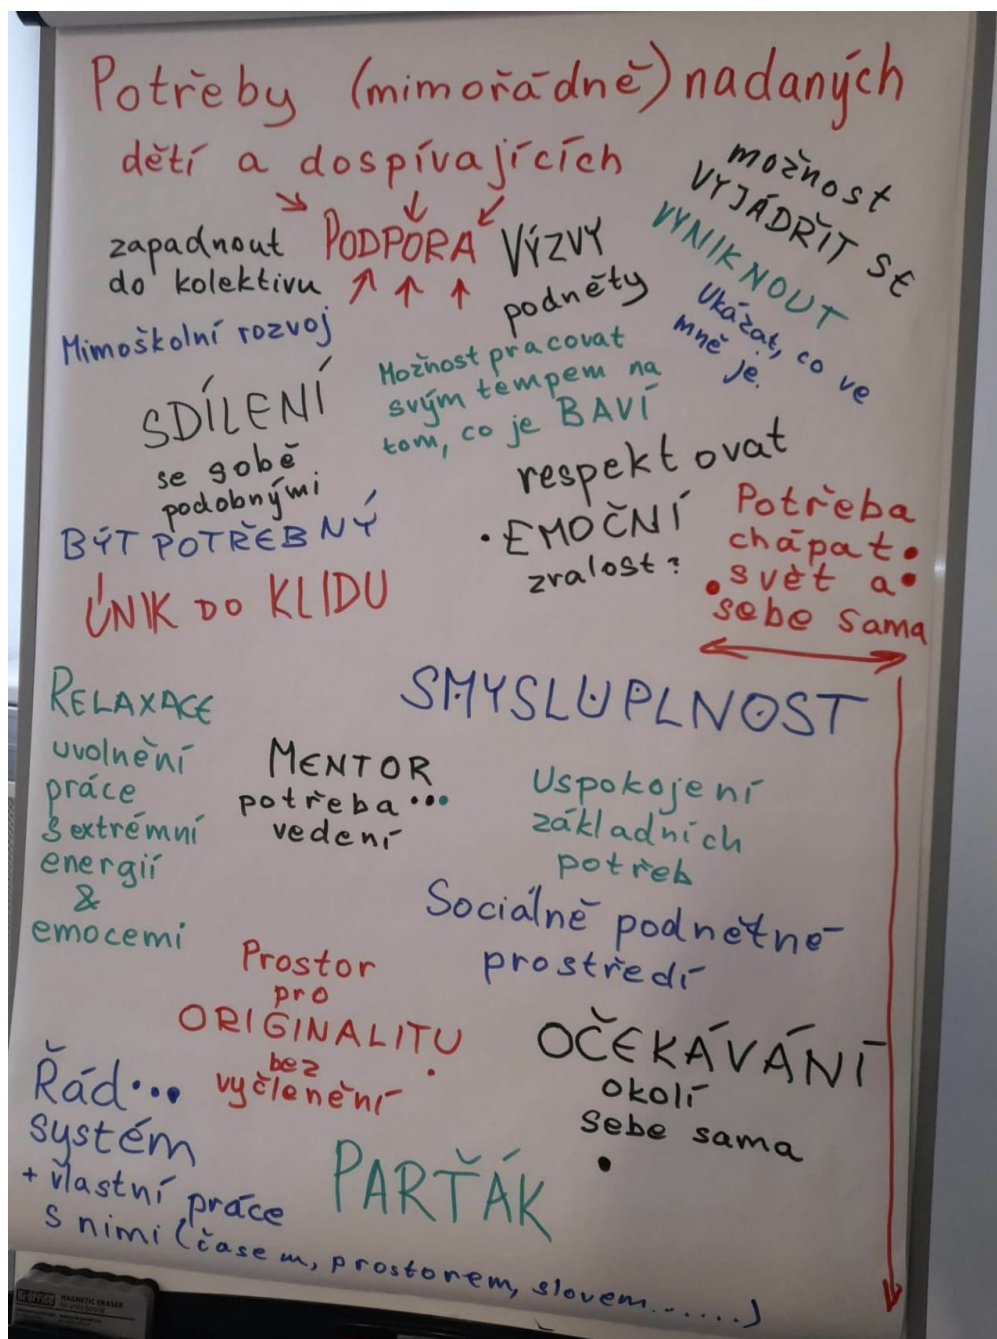 Potřeby (mimořádně) nadaných
dětí a dospívajících
možnost
VYJÁDŘIT SE
VYNIKNOUT
Ukázat, co ve
mně je.
zapadnout
do kolektivu
PODPORA
VÝZVY
podněty
Mimoškolní rozvoj
Možnost pracovat
svým tempem na
tom, co je BAVÍ
SDÍLENÍ
se sobě
podobnými
respektovat
• EMOČNÍ
zralost?
Potřeba
chápat •
• svět a •
sebe sama
BÝT POTŘEBNÝ
ÚNIK DO KLIDU
SMYSLUPLNOST
RELAXACE
uvolnění
práce
s extrémní
energií
&
emocemi
MENTOR
potřeba •••
vedení
Uspokojení
základních
potřeb
Sociálně podnětné
prostředí
Prostor
pro
ORIGINALITU
bez
vyčlenění
OČEKÁVÁNÍ
okolí
sebe sama
•
Řád •••
systém
+ vlastní práce
s nimi (časem, prostorem, slovem......)
PARŤÁK
BI-OFFICE MAGNETIC ERASER